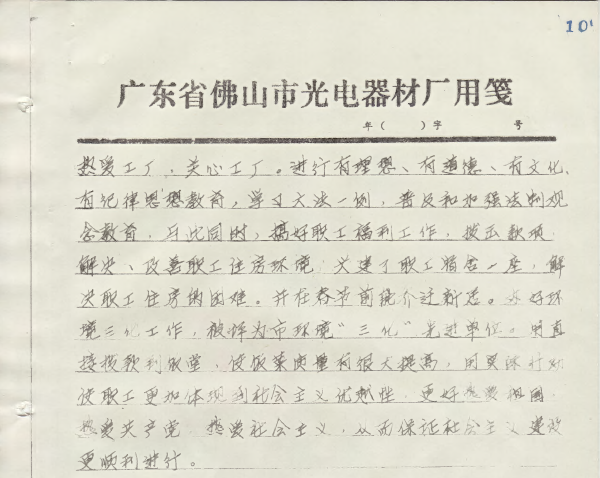 101
广东省佛山市光电器材厂用笺
年( )字 号
热爱工厂，关心工厂。进行有理想、有道德、有文化、
有纪律思想教育，学习大法一例，普及和加强法制观
念教育，与此同时，搞好职工福利工作，拨出款项
解决、改善职工住房环境，兴建了职工宿舍一座，解
决职工住房的困难。并在春节前 迁新 。 好环
境三化工作，被评为市环境“三化”先进单位。用直
接 款到饭堂，使饭菜质量有很大提高，用实际行动
使职工更加体现到社会主义优越性，更好热爱祖国、
热爱共产党、热爱社会主义，从而保证社会主义建设
更顺利进行。